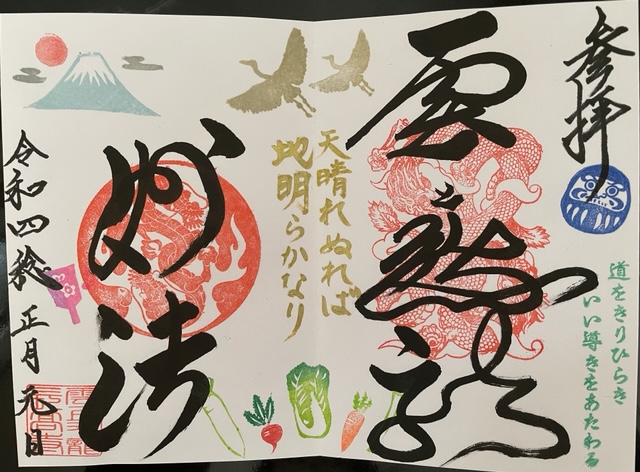 参拝
道をきりひらき
いい導きをあたわる
雲
天晴れぬれば
地明らかなり
妙法
令和四稔 正月元日